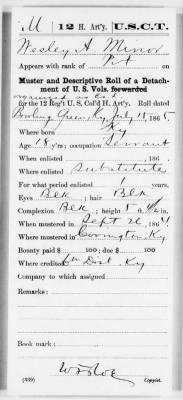 M | 12 H. Art'y. | U.S.C.T.
Wesley A. Minor
Appears with rank of Pvt on
Muster and Descriptive Roll of a Detach-
ment of U. S. Vols. forwarded
organized as Co
for the 12 Reg't U. S. Col'd H. Art'y. Roll dated
Bowling Green, Ky July 11, 1865.
Where born Ky
Age 18 y'rs; occupation Servant
When enlisted , 186 .
Where enlisted Substitute
For what period enlisted years.
Eyes Blk ; hair Blk
Complexion Blk ; height 5 ft. in.
When mustered in Sept 26, 1864
Where mustered in Covington, Ky
Bounty paid $ 100; due $ 100
Where credited 6th Dist. Ky
Company to which assigned
Remarks:
Book mark:
(339)
Copyist.